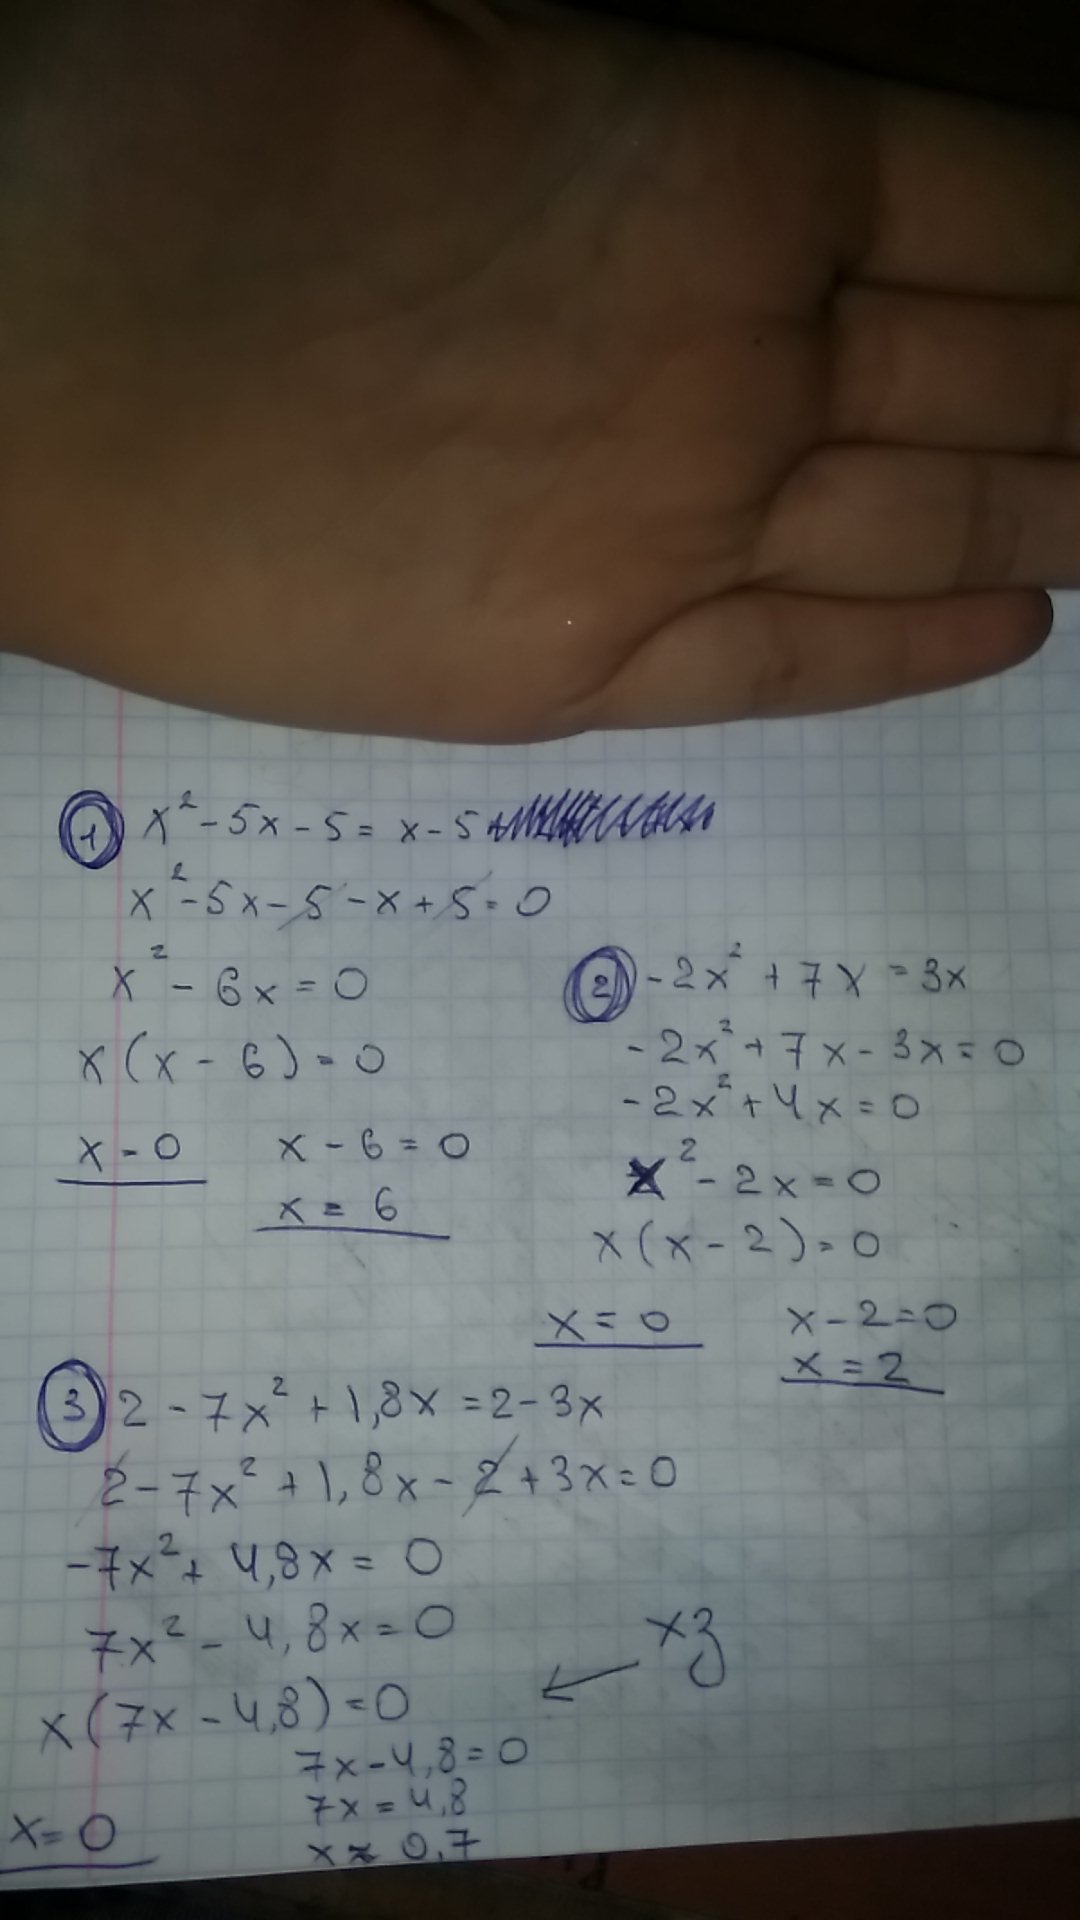 1 x² - 5x - 5 = x - 5
x² - 5x - 5 - x + 5 = 0
x² - 6x = 0
x(x - 6) = 0
x = 0
x - 6 = 0
x = 6
2 -2x² + 7x = 3x
-2x² + 7x - 3x = 0
-2x² + 4x = 0
x² - 2x = 0
x(x - 2) = 0
x = 0
x - 2 = 0
x = 2
3 2 - 7x² + 1,8x = 2 - 3x
2 - 7x² + 1,8x - 2 + 3x = 0
-7x² + 4,8x = 0
7x² - 4,8x = 0
хз
x(7x - 4,8) = 0
x = 0
7x - 4,8 = 0
7x = 4,8
x ≈ 0,7